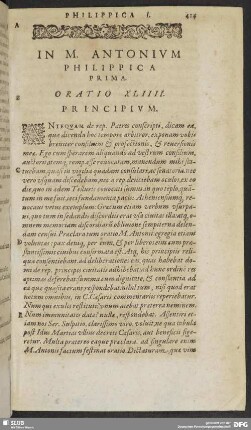 PHILIPPICA I. 424
A
IN M. ANTONIVM
PHILIPPICA
PRIMA.
ORATIO XLIIII.
PRINCIPIVM.
ANTEQVAM de rep. Patres conscripti, dicam ea,
quæ dicenda hoc tempore arbitror, exponam vobis
breuiter consilium & profectionis, & reuersionis
meæ. Ego cum sperarem aliquando ad vestrum consilium,
auctoritatemq; remp. esse reuocatam, manendum mihi sta-
tuebam, quasi in vigilia quadam consulari ac senatoria. nec
vero vsquam discedebam, nec a rep. deiiciebam oculos, ex eo
die quo in ædem Telluris conuocati sumus. in quo templo, quan-
tum in me fuit, ieci fundamenta pacis: Atheniensiumq; reno-
uaui vetus exemplum: Græcum etiam verbum vsurpa-
ui, quo tum in sedandis discordiis erat vsa ciuitas illa: atq; o-
mnem memoriam discordiarum obliuione sempiterna de-
lendam censui. Præclara tum oratio M. Antonii, egregia etiam
voluntas: pax deniq; per eum, & per liberos eius cum præ-
stantissimis ciuibus confirmata est. Atq; his principiis reli-
qua consentiebant. ad deliberationes eas, quas habebat do-
mi de rep. principes ciuitatis adhibebat: ad hunc ordinem res
optimas deferebat: summa cum dignitate, & constantia ad
ea quæ quæsita erant, respondebat: nihil tum, nisi quod erat
notum omnibus, in C. Cæsaris commentariis reperiebatur.
Num qui exules restituti? vnum aiebat: præterea neminem.
Num immunitates datæ? nullæ, respondebat. Assentiri et-
iam nos Ser. Sulpicio, clarissimo viro, voluit, ne qua tabula
post Idus Martias vllius decreti Cæsaris, aut beneficii fige-
retur. Multa prætereo eaque præclara. ad singulare enim
M. Antonii factum festinat oratio. Dictaturam, quæ vim